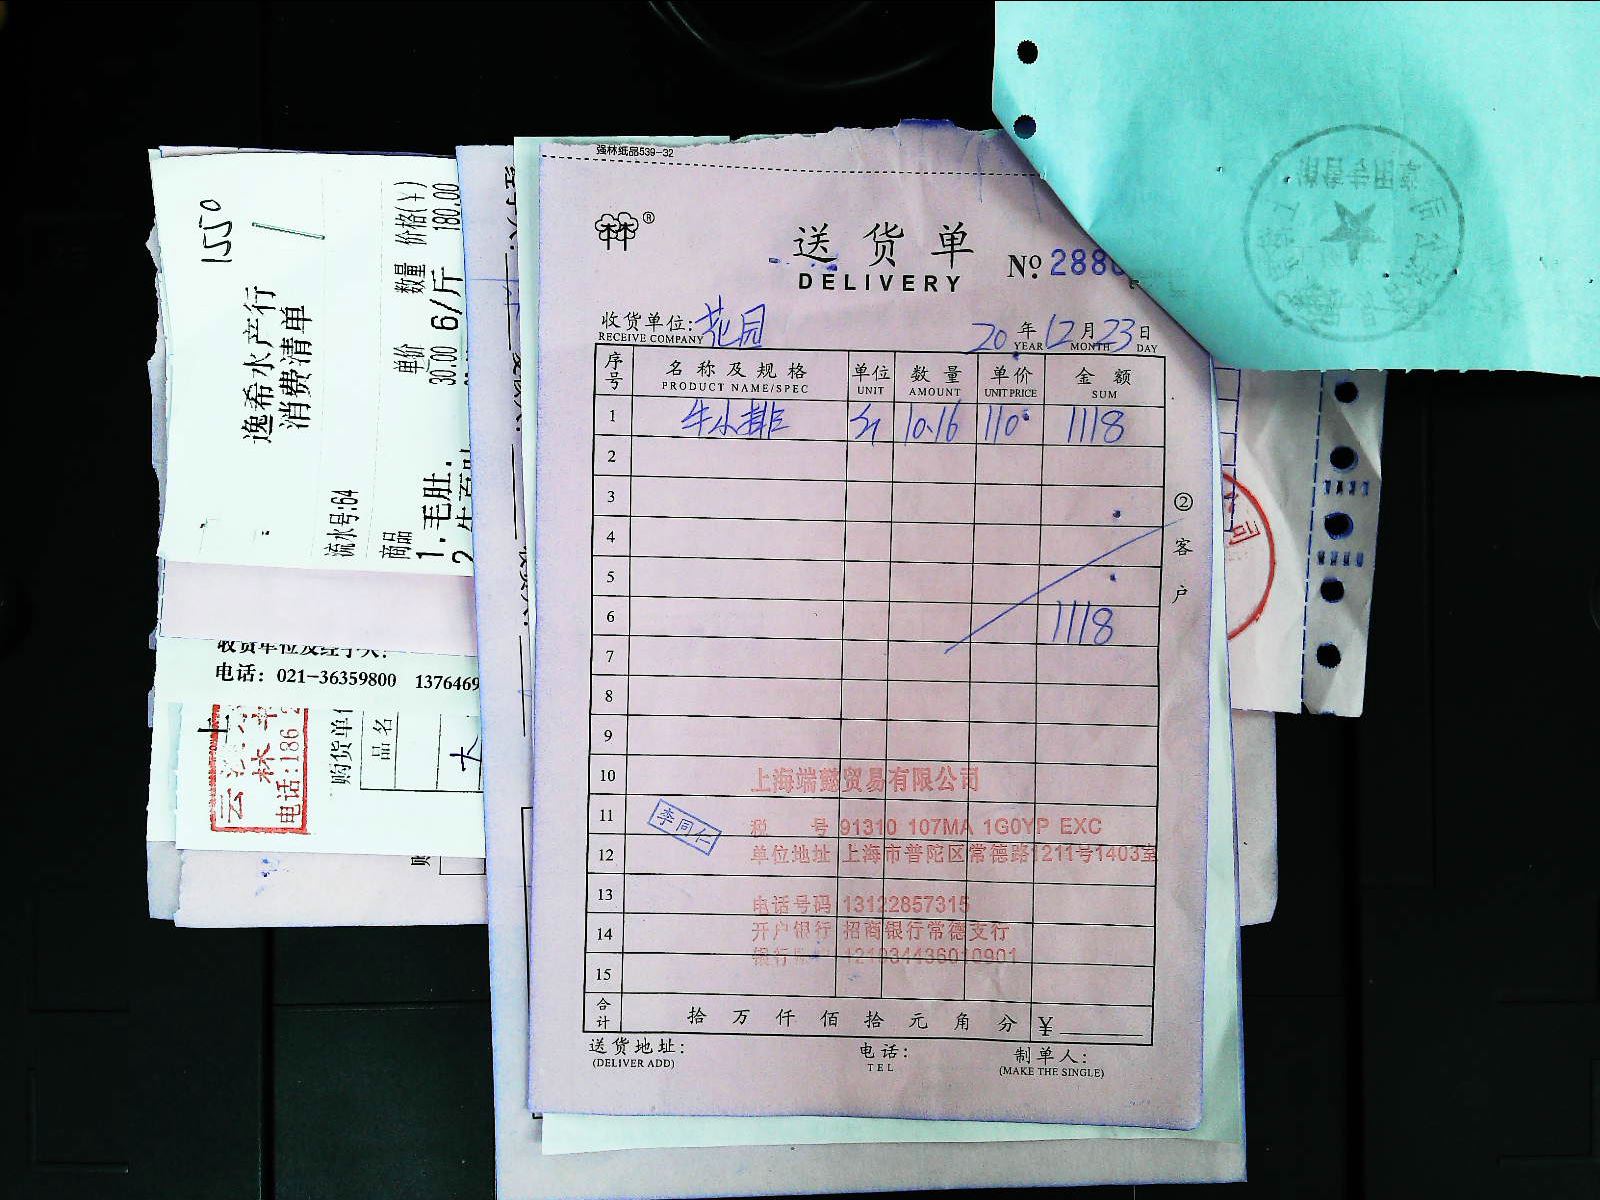 强林纸品539-32
送货单
DELIVERY
№ 288
收货单位: 花园
RECEIVE COMPANY
20 年 12 月 23 日
YEAR MONTH DAY
序号 名称及规格 单位 数量 单价 金额
PRODUCT NAME/SPEC UNIT AMOUNT UNIT PRICE SUM
1 牛小排 斤 10.16 110 1118
2
3
4
5
6 1118
7
8
9
10
11
12
13
14
15
② 客户
上海端懿贸易有限公司
税 号 91310 107MA 1G0YP EXC
单位地址 上海市普陀区常德路1211号1403室
电话号码 13122857315
开户银行 招商银行常德支行
李同仁
合计 拾 万 仟 佰 拾 元 角 分 ¥
送货地址: 电话: 制单人:
(DELIVER ADD) TEL (MAKE THE SINGLE)
1550
逸希水产行
消费清单
流水号:64
商品 单价 数量 价格(¥)
1.毛肚. 30.00 6/斤 180.00
收货单位及经手人:
电话: 021-36359800 1376469
电话:186
购货单
品名
大